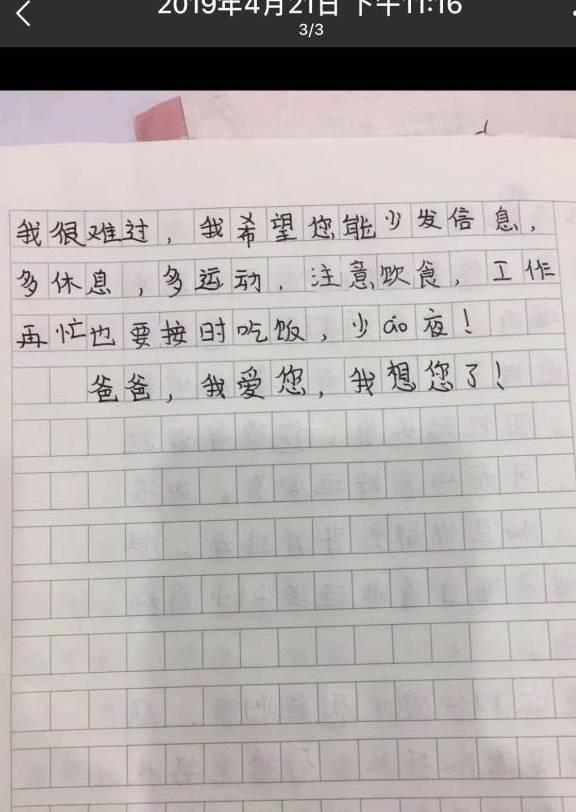 2019年4月21日 下午11:16
3/3
我很难过，我希望您能少发信息，
多休息，多运动，注意饮食，工作
再忙也要按时吃饭，少áo夜！
爸爸，我爱您，我想您了！